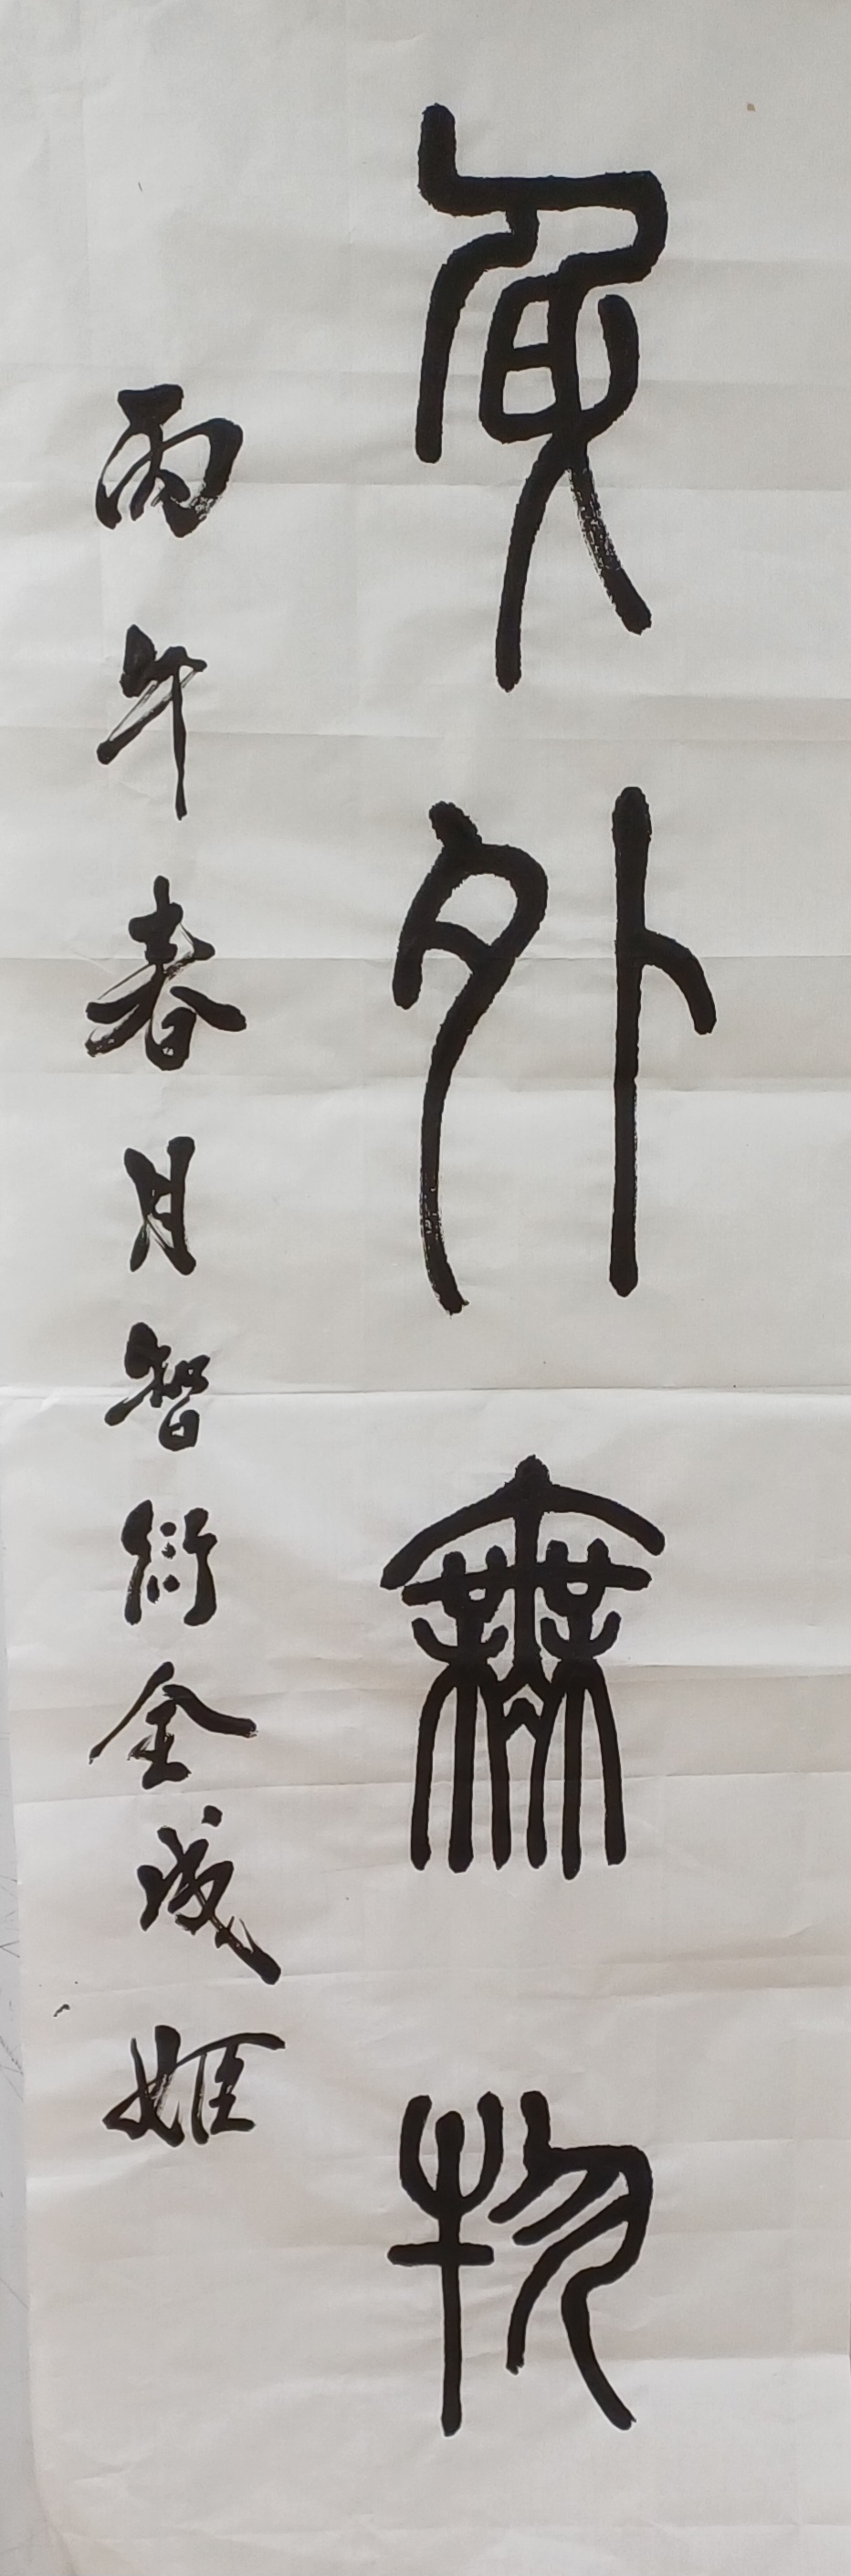 身外無物
丙午春月智衍全成姬